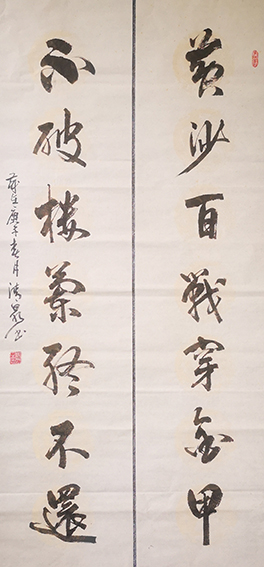 黄沙百戰穿金甲
不破楼蘭終不還
歲在庚午春月